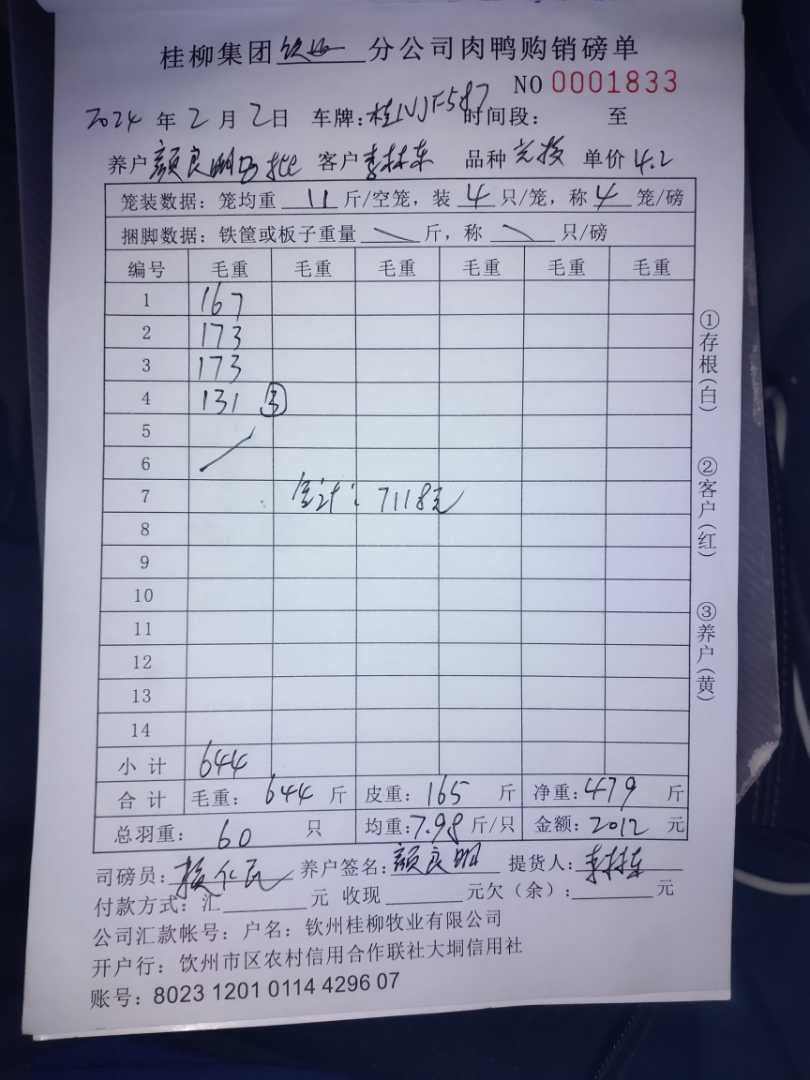 桂柳集团 钦州 分公司肉鸭购销磅单
NO 0001833
2024 年 2 月 2 日 车牌: 桂NJF587 时间段: 至
养户 颜良明 客户 李林东 品种 单价 4.2
笼装数据: 笼均重 11 斤/空笼, 装 4 只/笼, 称 4 笼/磅
捆脚数据: 铁筐或板子重量 斤, 称 只/磅
编号 毛重 毛重 毛重 毛重 毛重 毛重
1 167
2 173
3 173
4 131 ③
5
6
7 合计: 7118元
8
9
10
11
12
13
14
小计 644
合计 毛重: 644 斤 皮重: 165 斤 净重: 479 斤
总羽重: 60 只 均重: 7.98 斤/只 金额: 2012 元
司磅员: 养户签名: 颜良明 提货人: 李林东
付款方式: 汇 元 收现 元欠(余): 元
公司汇款帐号: 户名: 钦州桂柳牧业有限公司
开户行: 饮州市区农村信用合作联社大垌信用社
账号: 8023 1201 0114 4296 07
①存根(白) ②客户(红) ③养户(黄)